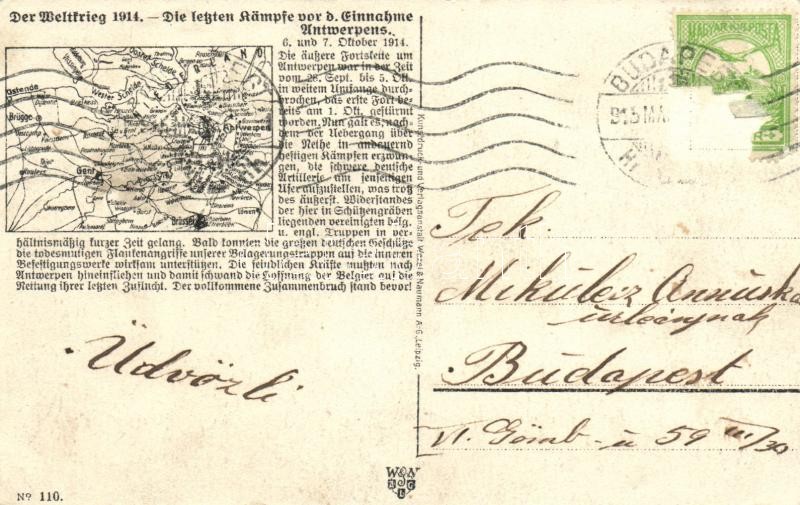 Der Weltkrieg 1914. — Die letzten Kämpfe vor d. Einnahme
Antwerpens.
6. und 7. Oktober 1914.
Die äußere Fortskette um
Antwerpen war in der Zeit
vom 28. Sept. bis 5. Okt.
in weitem Umfange durch-
brochen, das erste Fort be-
reits am 1. Okt. gestürmt
worden. Nun galt es, nach-
dem der Uebergang über
die Nethe in andauernd
heftigen Kämpfen erzwun-
gen, die schwere deutsche
Artillerie am jenseitigen
Ufer aufzustellen, was trotz
des äußerst. Widerstandes
der hier in Schützengräben
liegenden vereinigten belg.
u. engl. Truppen in ver-
hältnismäßig kurzer Zeit gelang. Bald konnten die großen deutschen Geschütze
die todesmutigen Flankenangriffe unserer Belagerungstruppen auf die inneren
Befestigungswerke wirksam unterstützen. Die feindlichen Kräfte mußten nach
Antwerpen hineinfliehen und damit schwand die Hoffnung der Belgier auf die
Rettung ihrer letzten Zuflucht. Der vollkommene Zusammenbruch stand bevor!
Ostende
Brügge
Gent
Antwerpen
Brüssel
Wester Schelde
Üdvözli
No 110.
Kunstdruck- und Verlagsanstalt Wezel & Naumann A.-G. Leipzig.
W & N
A G
L
MAGYAR KIR. POSTA
BUDAPEST
915 MA
Tek.
Mikulecz Annuska
urleánynak
Budapest
VI. Gömb-u 59 III/30